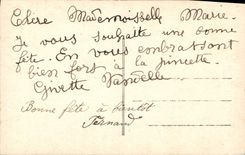 Chère Mademoiselle Marie.
Je vous souhaite une bonne
fête. En vous embrassant
bien fort à la pincette.
Ginette
Bonne fête à bientôt
Fernand